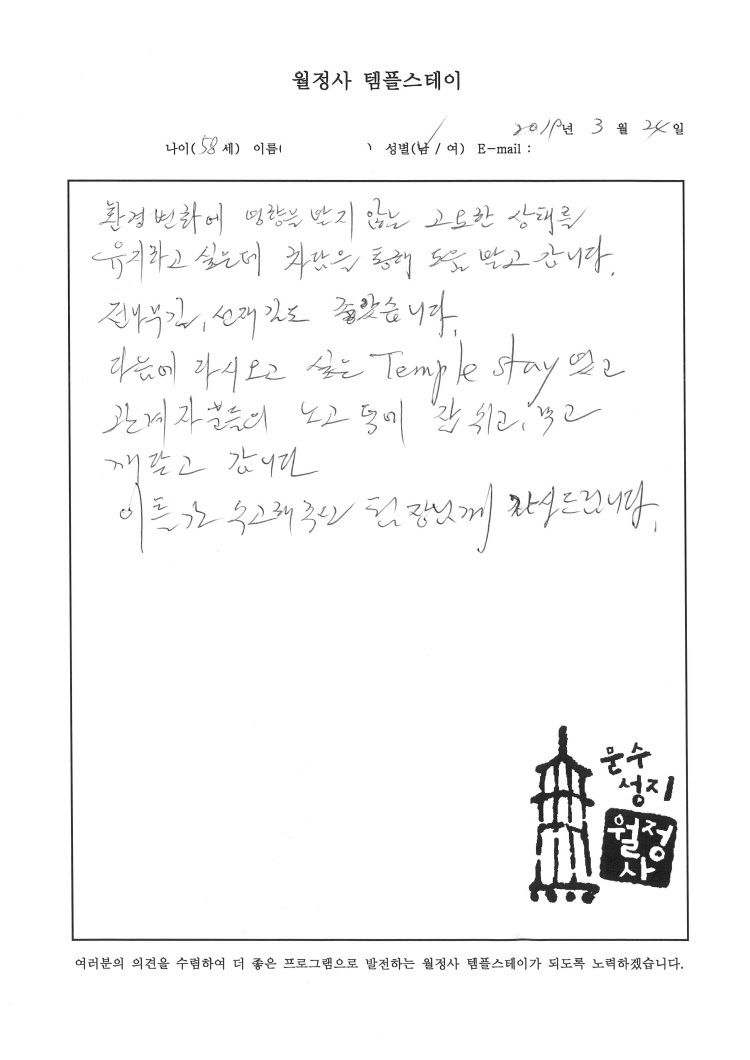 월정사 템플스테이
2019년 3월 24일
나이(58세) 이름( ) 성별(남 / 여) E-mail :
환경변화에 영향을 받지 않는 고요한 상태를
유지하고 싶은데 차담을 통해 도움 받고 갑니다.
전나무길, 선재길도 좋았습니다.
다음에 다시오고 싶은 Temple stay 였고
관계자분들의 노고 덕에 잘 쉬고, 먹고
깨닫고 갑니다
이틀간 수고해주신 팀장님께 감사드립니다.
문수
성지
월정
사
여러분의 의견을 수렴하여 더 좋은 프로그램으로 발전하는 월정사 템플스테이가 되도록 노력하겠습니다.